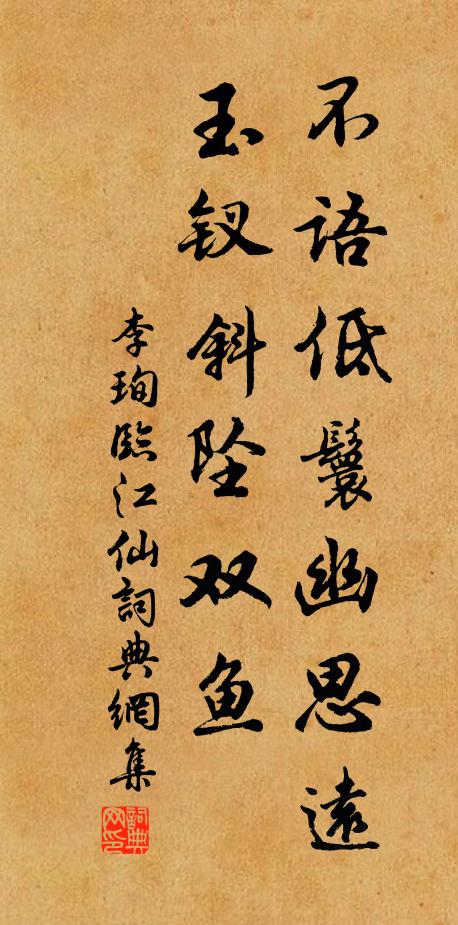 不语低鬟幽思远
玉钗斜坠双鱼
李珣臨江仙詞典網集
詞典网印